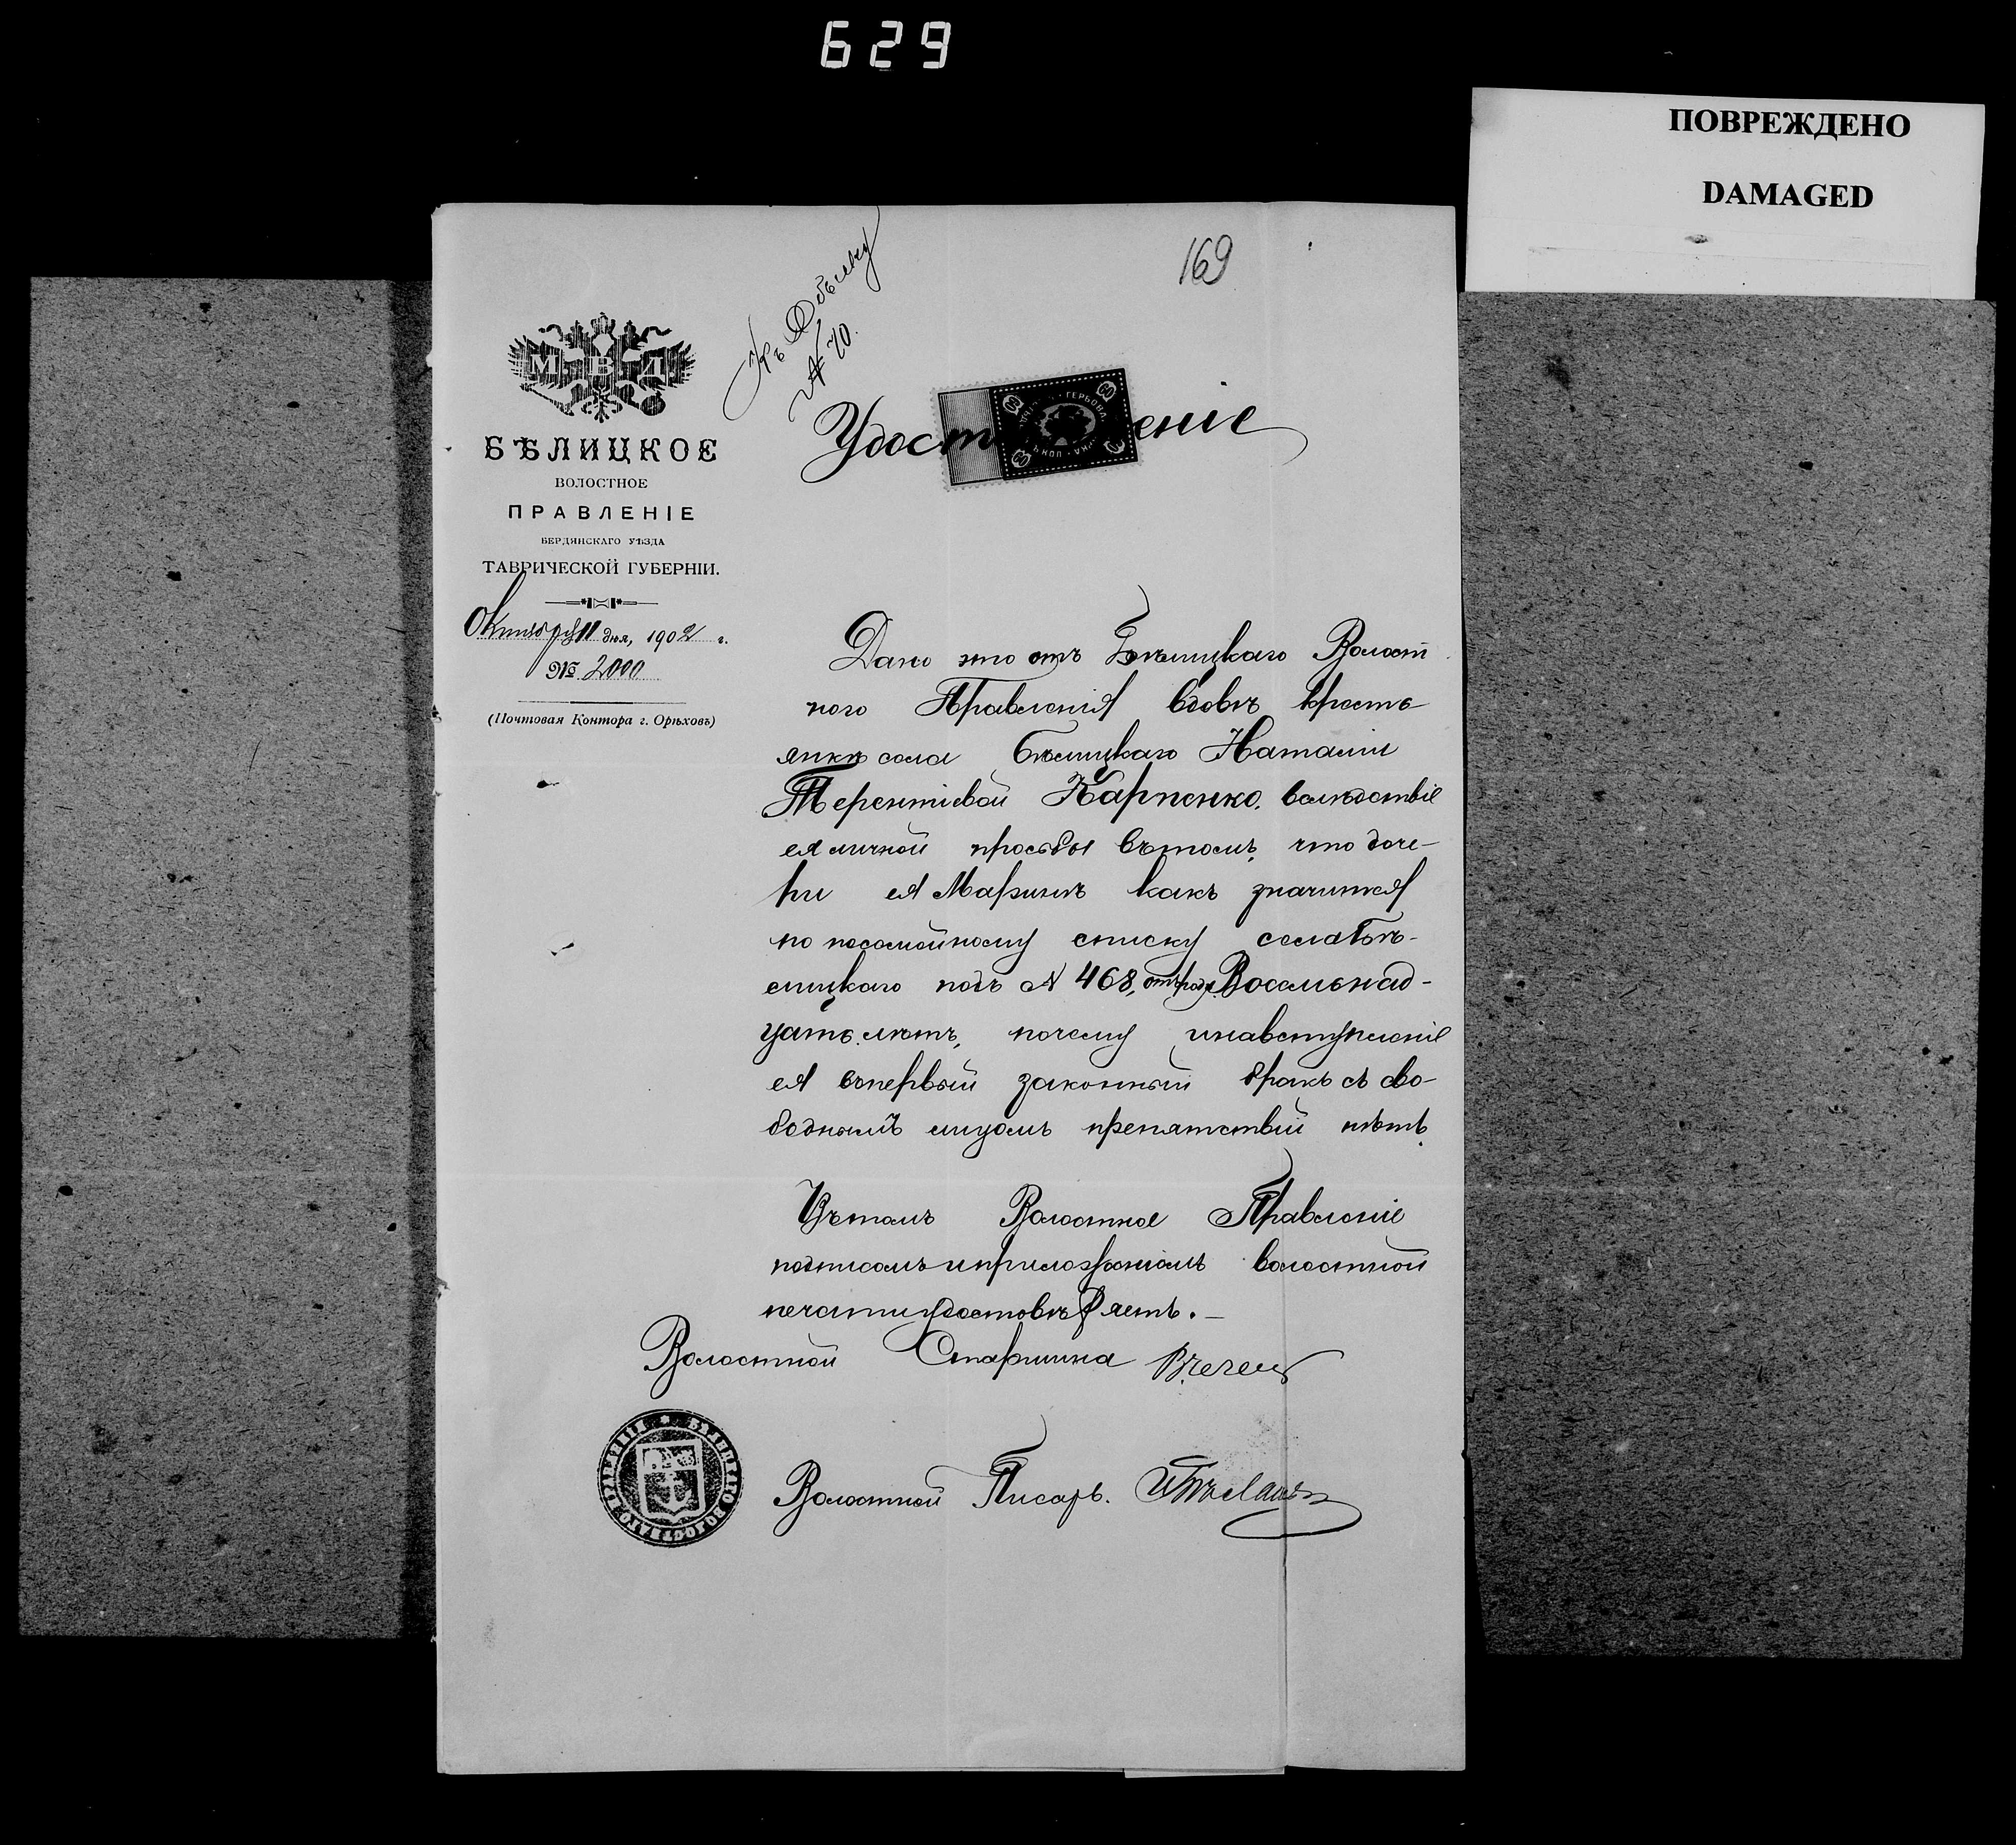 629
ПОВРЕЖДЕНО
DAMAGED
169
Къ Обыску
№ 70.
М В Д
БѢЛИЦКОЕ
ВОЛОСТНОЕ
ПРАВЛЕНІЕ
БЕРДЯНСКАГО УѢЗДА
ТАВРИЧЕСКОЙ ГУБЕРНІИ.
Октября 11 дня, 1902 г.
№ 2000
(Почтовая Контора г. Орѣховъ)
Удост еніе
60 60
60 60
Дано это отъ Бѣлицкаго Волост
ного Правленія вдовѣ кресть-
янкѣ села Бѣлицкаго Наталіи
Терентіевой Карпенко, вслѣдствіе
ея личной просьбы вътомъ, что доче-
ри ея Маринѣ какъ значится
по посемейному списку села Бѣ-
лицкаго подъ № 468, отъ роду Восемьнад-
цать лѣтъ, почему инавступленіе
ея въпервый законный бракъ съ сво-
боднымъ лицомъ препятствій нѣтъ.
Вътомъ Волостное Правленіе
подписомъ иприложеніемъ волостной
печати удостовѣряетъ.—
Волостной Старшина
Волостной Писарь.
БѢЛИЦКАГО ВОЛОСТНАГО ПРАВЛЕНІЯ